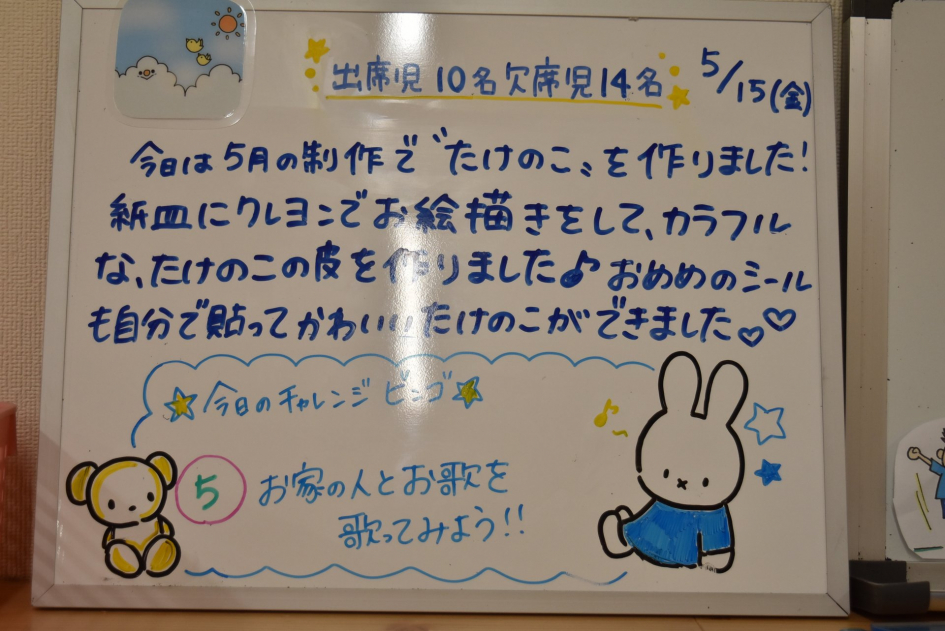 出席児10名欠席児14名
5/15(金)
今日は5月の制作で〝たけのこ〟を作りました!
紙皿にクレヨンでお絵描きをして、カラフル
な、たけのこの皮を作りました♪おめめのシール
も自分で貼ってかわいいたけのこができました♡♡
☆今日のチャレンジビンゴ☆
5 お家の人とお歌を
歌ってみよう!!